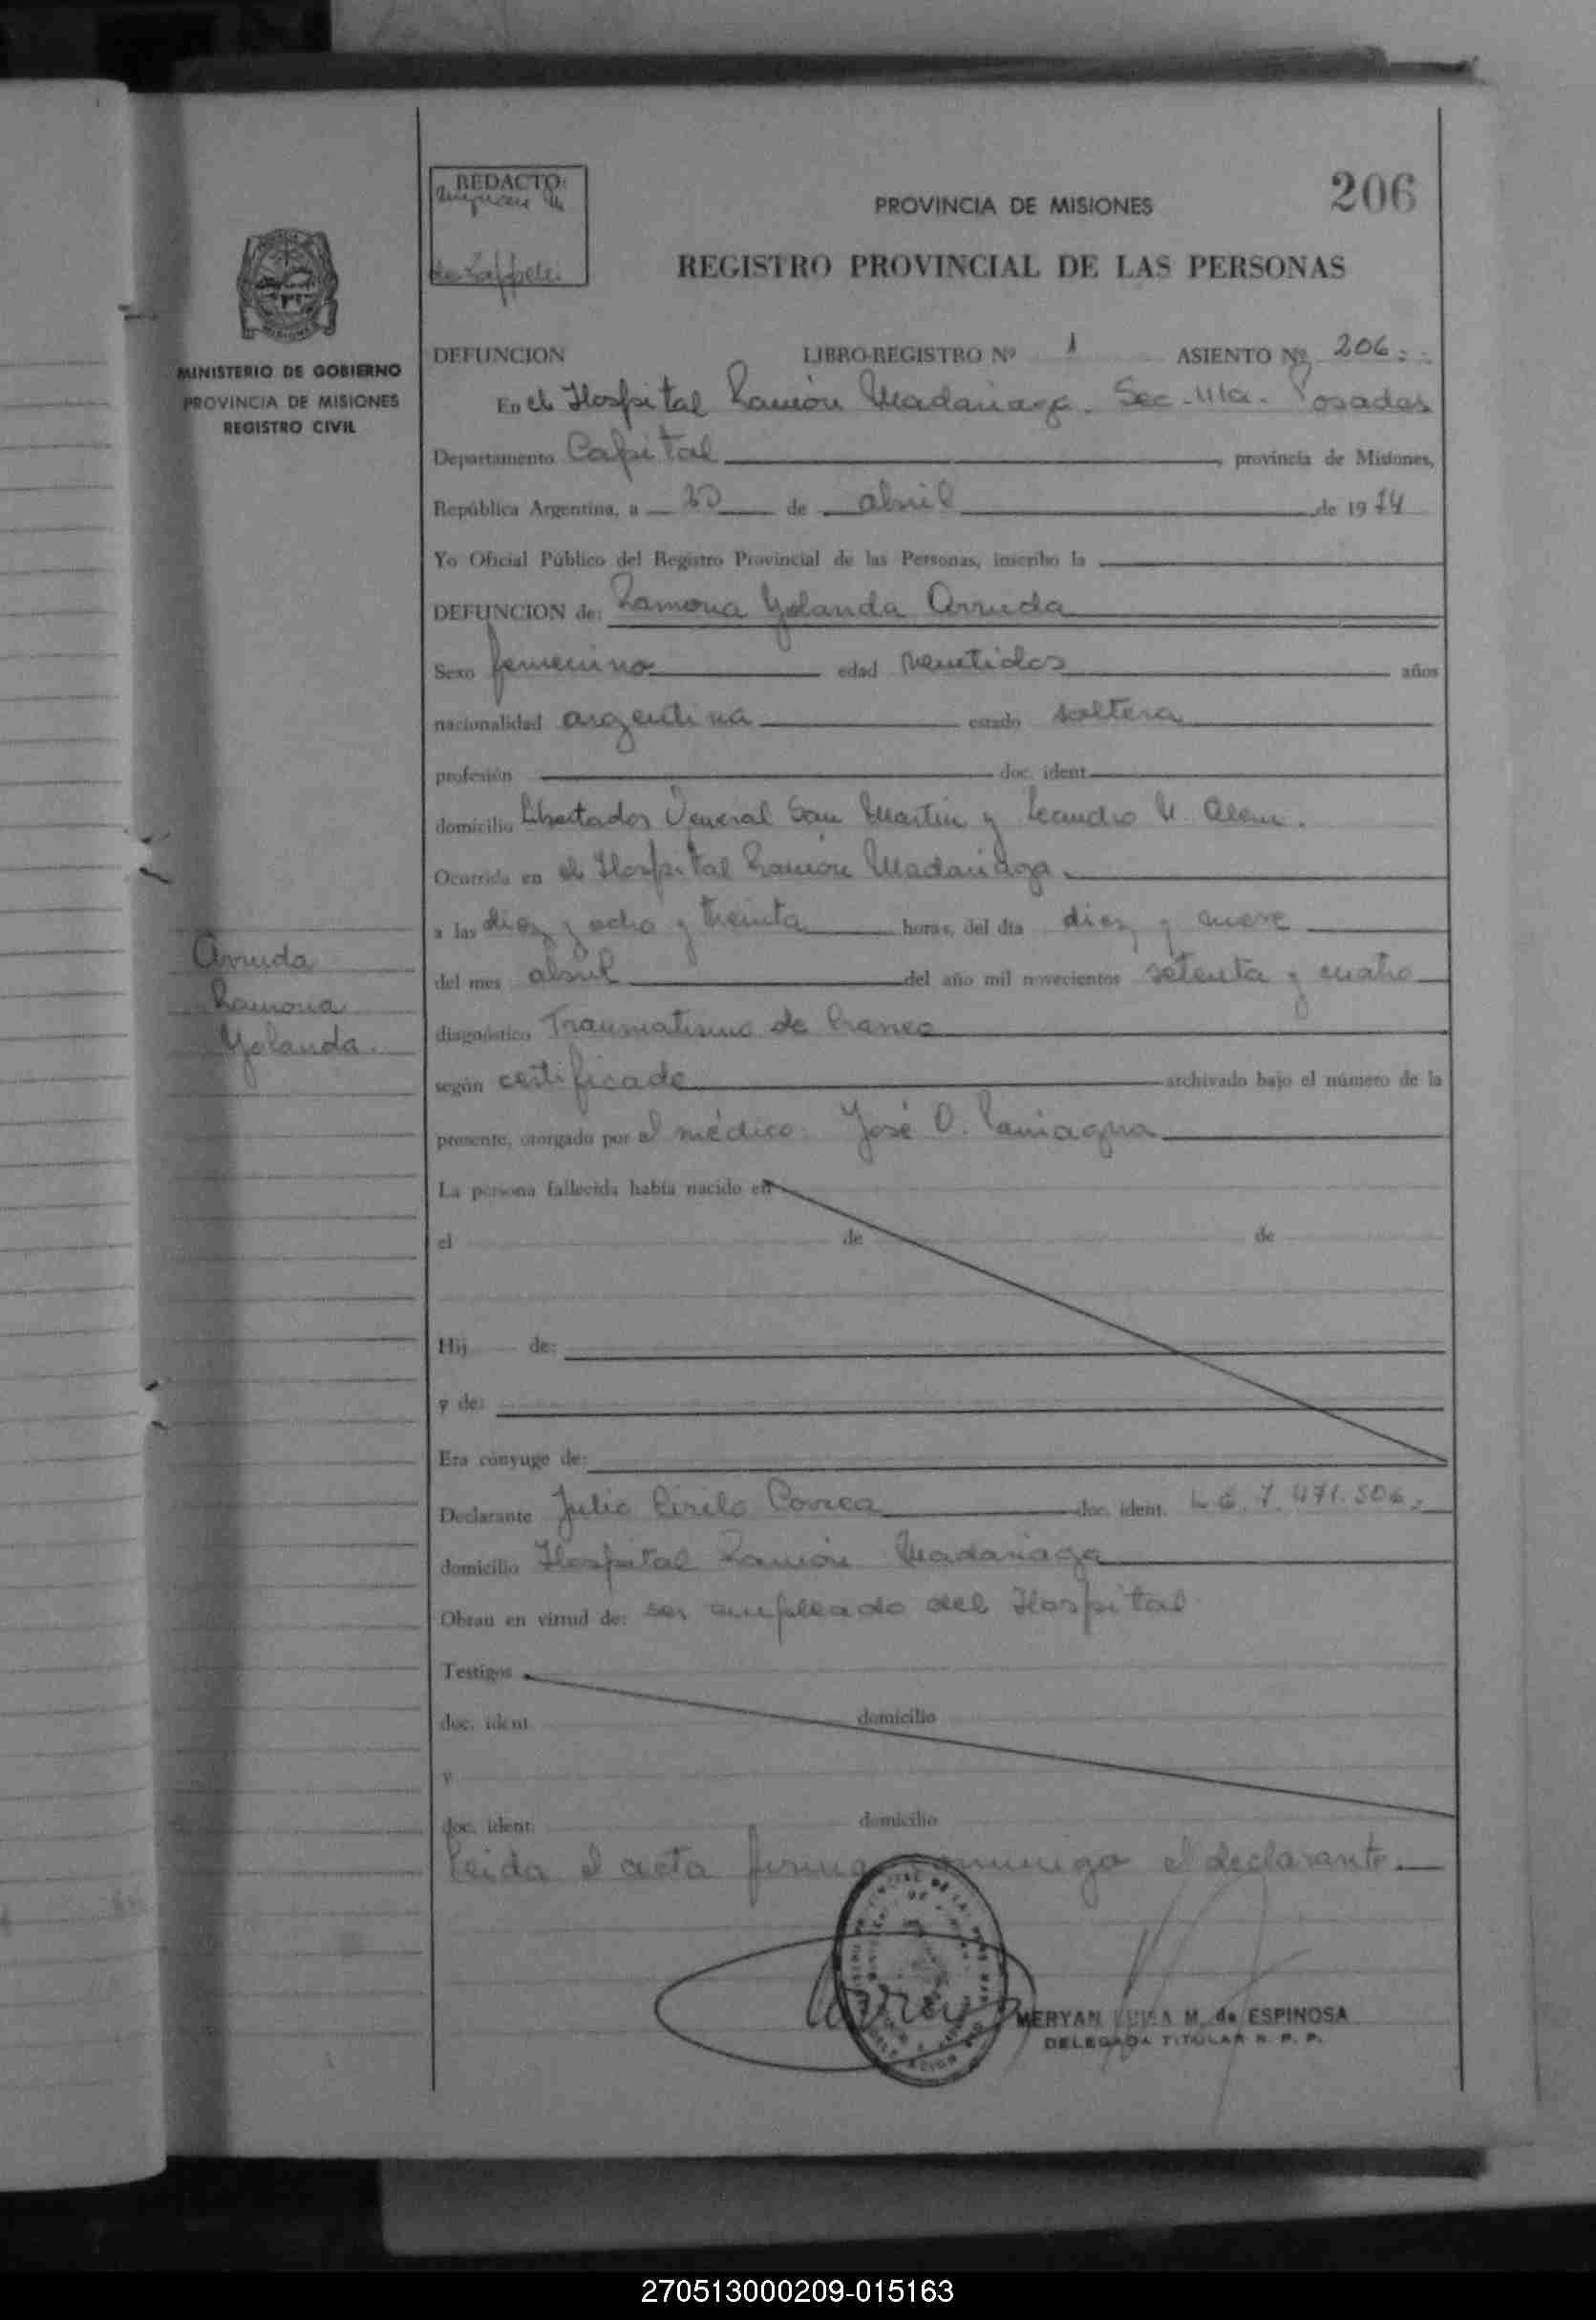 206
REDACTO:
de Zappelli
PROVINCIA DE MISIONES
REGISTRO PROVINCIAL DE LAS PERSONAS
MINISTERIO DE GOBIERNO
PROVINCIA DE MISIONES
REGISTRO CIVIL
DEFUNCION LIBRO-REGISTRO Nº 1 ASIENTO Nº 206
En el Hospital Ramón Madariaga. Sec. Posadas
Departamento Capital, provincia de Misiones,
República Argentina, a de abril de 1974
Yo Oficial Público del Registro Provincial de las Personas, inscribo la
DEFUNCION de: Ramona Yolanda Arruda
Sexo femenino edad veintidos años
nacionalidad argentina estado soltera
profesión doc. ident.
domicilio Libertador General San Martin y Leandro N. Alem.
Ocurrida en el Hospital Ramón Madariaga.
a las diez y ocho y treinta horas, del día diez y nueve
del mes abril del año mil novecientos setenta y cuatro
diagnóstico Traumatismo de Craneo
según certificado archivado bajo el número de la
presente, otorgado por el médico: José O. Paniagua
Arruda
Ramona
Yolanda.
La persona fallecida había nacido en
el de de
Hij de:
y de:
Era cónyuge de:
Declarante Julio Cirilo Correa doc. ident. L.E. 7.471.506.
domicilio Hospital Ramón Madariaga
Obran en virtud de: ser empleado del Hospital
Testigos
doc. ident. domicilio
y
doc. ident. domicilio
Leida el acta firma conmigo el declarante.
MERYAN LUISA M. de ESPINOSA
DELEGADA TITULAR R. P. P.
270513000209-015163